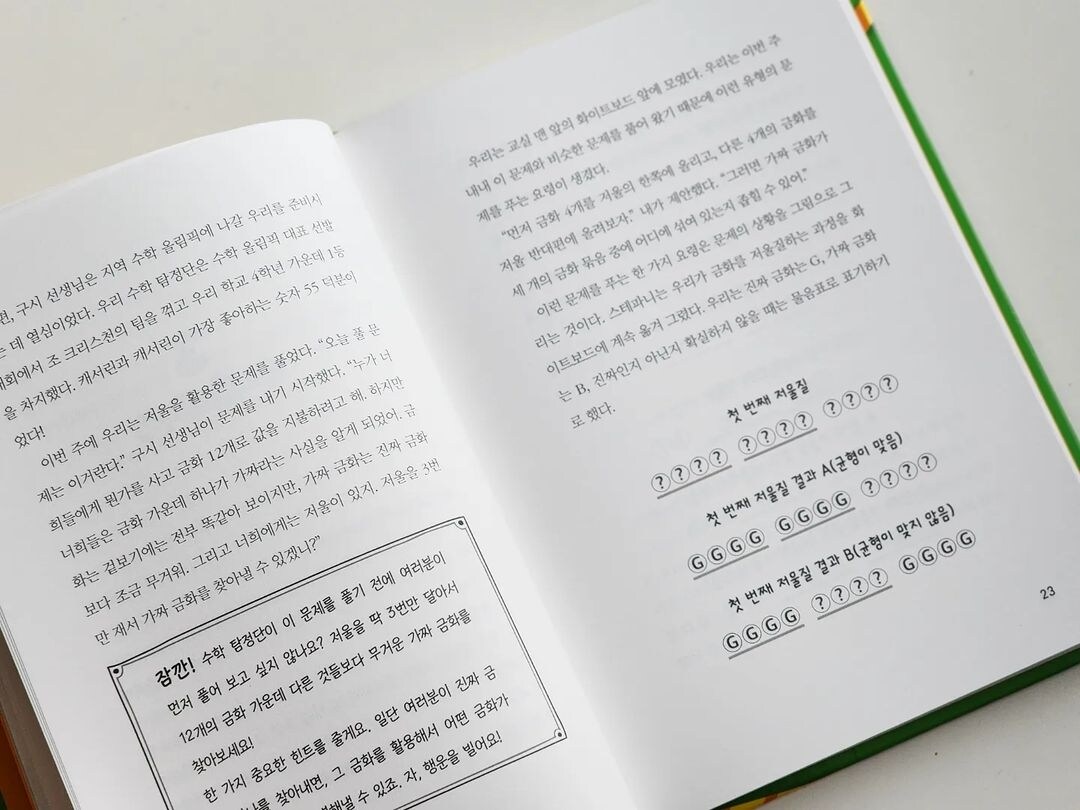 면, 구시 선생님은 지역 수학 올림픽에 나갈 우리를 준비시
는 데 열심이었다. 우리 수학 탐정단은 수학 올림픽 대표 선발
대회에서 조 크리스천의 팀을 꺾고 우리 학교 4학년 가운데 1등
을 차지했다. 캐서린과 캐서린이 가장 좋아하는 숫자 55 덕분이
었다!
이번 주에 우리는 저울을 활용한 문제를 풀었다. “오늘 풀 문
제는 이거란다.” 구시 선생님이 문제를 내기 시작했다. “누가 너
희들에게 뭔가를 사고 금화 12개로 값을 지불하려고 해. 하지만
너희들은 금화 가운데 하나가 가짜라는 사실을 알게 되었어. 금
화는 겉보기에는 전부 똑같이 보이지만, 가짜 금화는 진짜 금화
보다 조금 무거워. 그리고 너희에게는 저울이 있지. 저울을 3번
만 재서 가짜 금화를 찾아낼 수 있겠니?”
잠깐! 수학 탐정단이 이 문제를 풀기 전에 여러분이
먼저 풀어 보고 싶지 않나요? 저울을 딱 3번만 달아서
12개의 금화 가운데 다른 것들보다 무거운 가짜 금화를
찾아보세요!
한 가지 중요한 힌트를 줄게요. 일단 여러분이 진짜 금
를 찾아내면, 그 금화를 활용해서 어떤 금화가
해낼 수 있죠. 자, 행운을 빌어요!
우리는 교실 맨 앞의 화이트보드 앞에 모였다. 우리는 이번 주
내내 이 문제와 비슷한 문제를 풀어 왔기 때문에 이런 유형의 문
제를 푸는 요령이 생겼다.
“먼저 금화 4개를 저울의 한쪽에 올리고, 다른 4개의 금화를
저울 반대편에 올려보자.” 내가 제안했다. “그러면 가짜 금화가
세 개의 금화 묶음 중에 어디에 섞여 있는지 좁힐 수 있어.”
이런 문제를 푸는 한 가지 요령은 문제의 상황을 그림으로 그
리는 것이다. 스테파니는 우리가 금화를 저울질하는 과정을 화
이트보드에 계속 옮겨 그렸다. 우리는 진짜 금화는 G, 가짜 금화
는 B, 진짜인지 아닌지 확실하지 않을 때는 물음표로 표기하기
로 했다.
첫 번째 저울질
? ? ? ? ? ? ? ? ? ? ? ?
첫 번째 저울질 결과 A(균형이 맞음)
G G G G G G G G ? ? ? ?
첫 번째 저울질 결과 B(균형이 맞지 않음)
G G G G ? ? ? ? G G G G
23